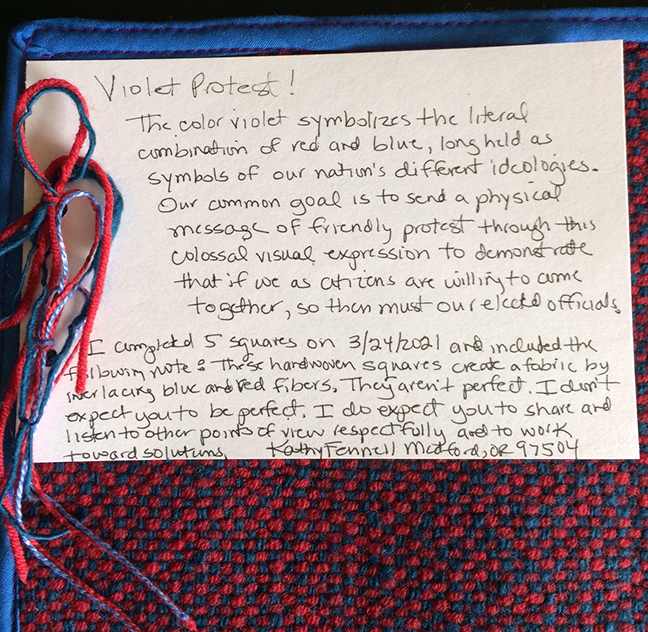 Violet Protest!
The color violet symbolizes the literal
combination of red and blue, long held as
symbols of our nation's different ideologies.
Our common goal is to send a physical
message of friendly protest through this
colossal visual expression to demonstrate
that if we as citizens are willing to come
together, so then must our elected officials.
I completed 5 squares on 3/24/2021 and included the
following note: These handwoven squares create a fabric by
interlacing blue and red fibers. They aren't perfect. I don't
expect you to be perfect. I do expect you to share and
listen to other points of view respectfully and to work
toward solutions. Kathy Fennell Medford, OR 97504